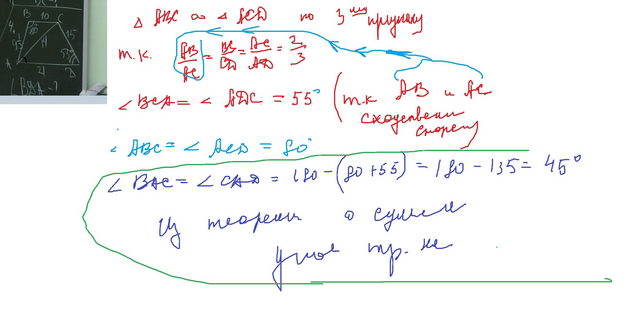 Δ ABC ∞ Δ ACD по 3 му признаку
т.к. AB/AC = BC/CD = AC/AD = 2/3
∠ BCA = ∠ ADC = 55° (т.к AB и AC
сходственные
стороны)
∠ ABC = ∠ ACD = 80°
∠ BAC = ∠ CAD = 180 - (80+55) = 180 - 135 = 45°
Из теоремы о сумме
углов тр. ка